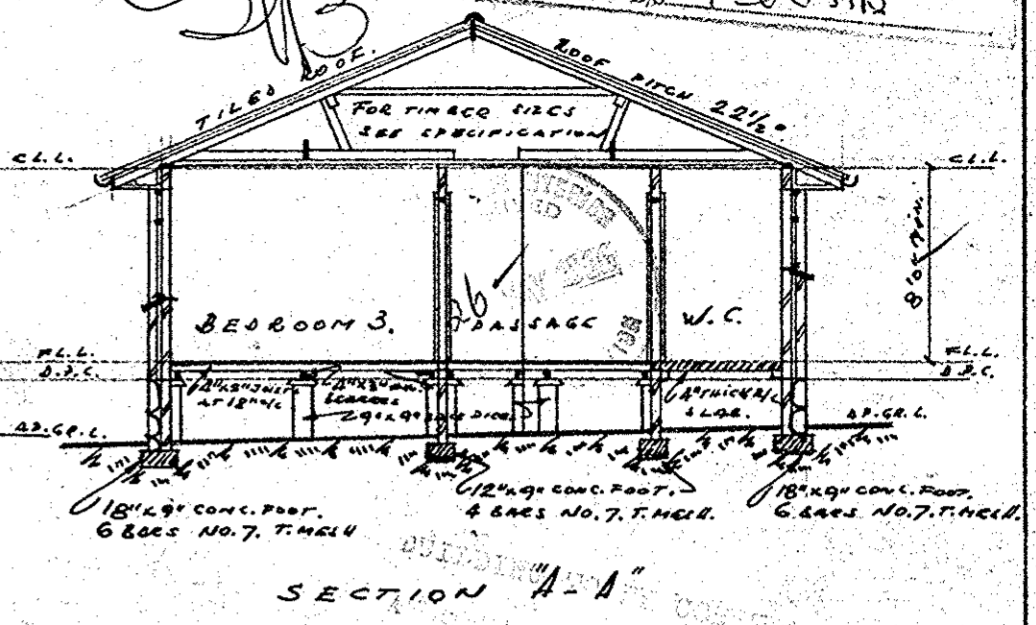 TILED ROOF.
ROOF PITCH 22½°
FOR TIMBER SIZES
SEE SPECIFICATION
C.L.L.
C.L.L.
8'0" MIN.
BEDROOM 3.
PASSAGE
W.C.
F.L.L.
D.P.C.
F.L.L.
D.P.C.
4"x2" JOISTS
AT 18" C/C
4"x3"
BEARERS
9"x9"
4" THICK R/C
SLAB.
AP.GR.L.
AP.GR.L.
18"x9" CONC. FOOT.
6 BARS NO.7. T.MESH
12"x9" CONC. FOOT.
4 BARS NO.7. T.MESH.
18"x9" CONC. FOOT.
6 BARS NO.7. T.MESH.
SECTION "A-A"